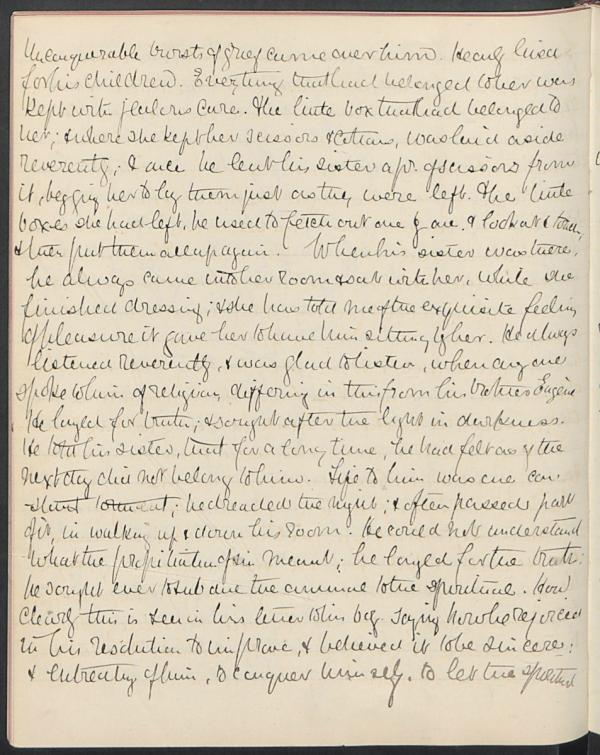 Unconquerable bursts of grief came over him. He only lived
for his children. Everything that had belonged to her was
kept with jealous care. The little box that had belonged to
her; & where she kept her scissors & cottons, was laid aside
reverently; & once he lent his sister a pr. of scissors from
it, begging her to lay them just as they were left. The little
boxes she had left, he used to fetch out one by one. & look at & touch,
& then put them all up again. When his sister was there,
he always came into her room & sat with her, while she
finished dressing; & she has told me of the exquisite feeling
of pleasure it gave her to have him sitting by her. He always
listened reverently, & was glad to listen, when any one
spoke to him of religion, differing in this from his brother Eugène
He longed for truth; & sought after the light in darkness.
He told his sister, that for a long time, he had felt as if the
next day did not belong to him. Life to him was one con
-stant torment; he dreaded the night; & often passed part
of it, in walking up & down his room. He could not understand
what the propitiation of sin meant; he longed for the truth:
he sought ever to subdue the animal to the spiritual. How
clearly this is seen in his letter to his boy. Saying how he rejoiced
in his resolution to improve, & believed it to be sincere:
& entreating of him, to conquer himself. to let the spiritual